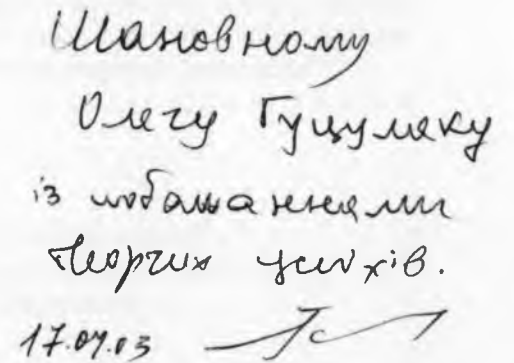 Шановному
Олегу Гуцуляку
із побажаннями
творчих успіхів.
17.04.03